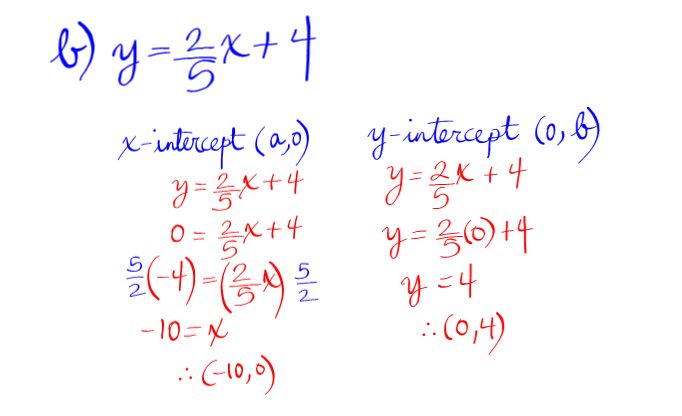 b) y = 2/5 x + 4
x-intercept (a,0)
y = 2/5 x + 4
0 = 2/5 x + 4
5/2 (-4) = (2/5 x) 5/2
-10 = x
∴ (-10,0)
y-intercept (0, b)
y = 2/5 x + 4
y = 2/5 (0) + 4
y = 4
∴ (0,4)